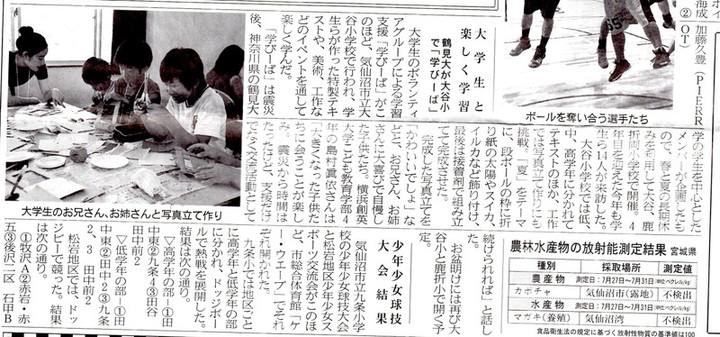 加藤久豊(PIERR
②OT)
ボールを奪い合う選手たち
大学生と
楽しく学習
鶴見大が大谷小
で「学びーば」
大学生のボランティ
アグループによる学習
支援「学びーば」がこ
のほど、気仙沼市立大
谷小学校で行われ、学
生らが作った特製テキ
ストや、美術、工作な
どのイベントを通して
楽しく学んだ。
「学びーば」は震災
後、神奈川県の鶴見大
学の学生を中心とした
メンバーが企画したも
ので、春と夏の長期休
みを利用して大谷、鹿
折両小学校で開催。4
年目を迎えた今年も学
生ら14人が来訪した。
大谷小学校では低、
中、高学年に分かれて
テキストのほか、工作
では写真立て作りにも
挑戦。「夏」をテーマ
に、段ボールの枠に折
り紙の太陽やスイカ、
イルカなど飾り付け、
最後は接着剤で組み立
てて完成させた。
完成した写真立てを
「かわいいでしょ」な
どと、お兄さん、お姉
さんに大喜びで自慢し
た子供たち。横浜創英
大こども教育学部4
年の島村眞依さんは
「大きくなった子供た
ちと会うことが楽し
み。震災から時間は
たったけど、支援だけ
でなく交流活動として
続けられれば」と話し
お盆明けには再び大
谷小と鹿折小で開く予
定。
大学生のお兄さん、お姉さんと写真立て作り
少年少女球技
大会結果
気仙沼市立九条小学
校の少年少女球技大会
と松岩地区少年少女ス
ポーツ交流会がこのほ
ど、市総合体育館「ケ
ー・ウエーブ」でそれ
ぞれ開かれた。
九条小では地区ごと
に高学年と低学年の部
に分かれ、ドッジボー
ルで熱戦を展開した。
結果は次の通り。
▽高学年の部=①田
中東②九条4③田谷
田中前2
▽低学年の部=①田
中東②田中2③九条
2、3 田中前2
松岩地区では、ドッ
ジビーで競った。結果
は次の通り。
①牧沢A②赤岩・赤
五③後沢二区 石甲B
農林水産物の放射能測定結果 宮城県
種別 採取場所 測定値
農産物 測定日:7月27日〜7月31日(単位ベクレル/kg)
カボチャ 気仙沼市(露地) 不検出
水産物 測定日:7月27日〜7月31日(単位ベクレル/kg)
マガキ(養殖) 気仙沼湾 不検出
食品衛生法の規定に基づく放射性物質の基準値は100